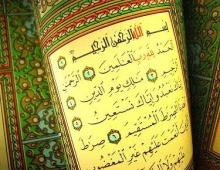 بسم الله الرحمن الرحيم
الحمد لله رب العالمين الرحمن
الرحيم ملك يوم الدين
إياك نعبد وإياك نستعين
اهدنا الصراط المستقيم صراط
أنعمت عليهم غير المغضوب
ولا